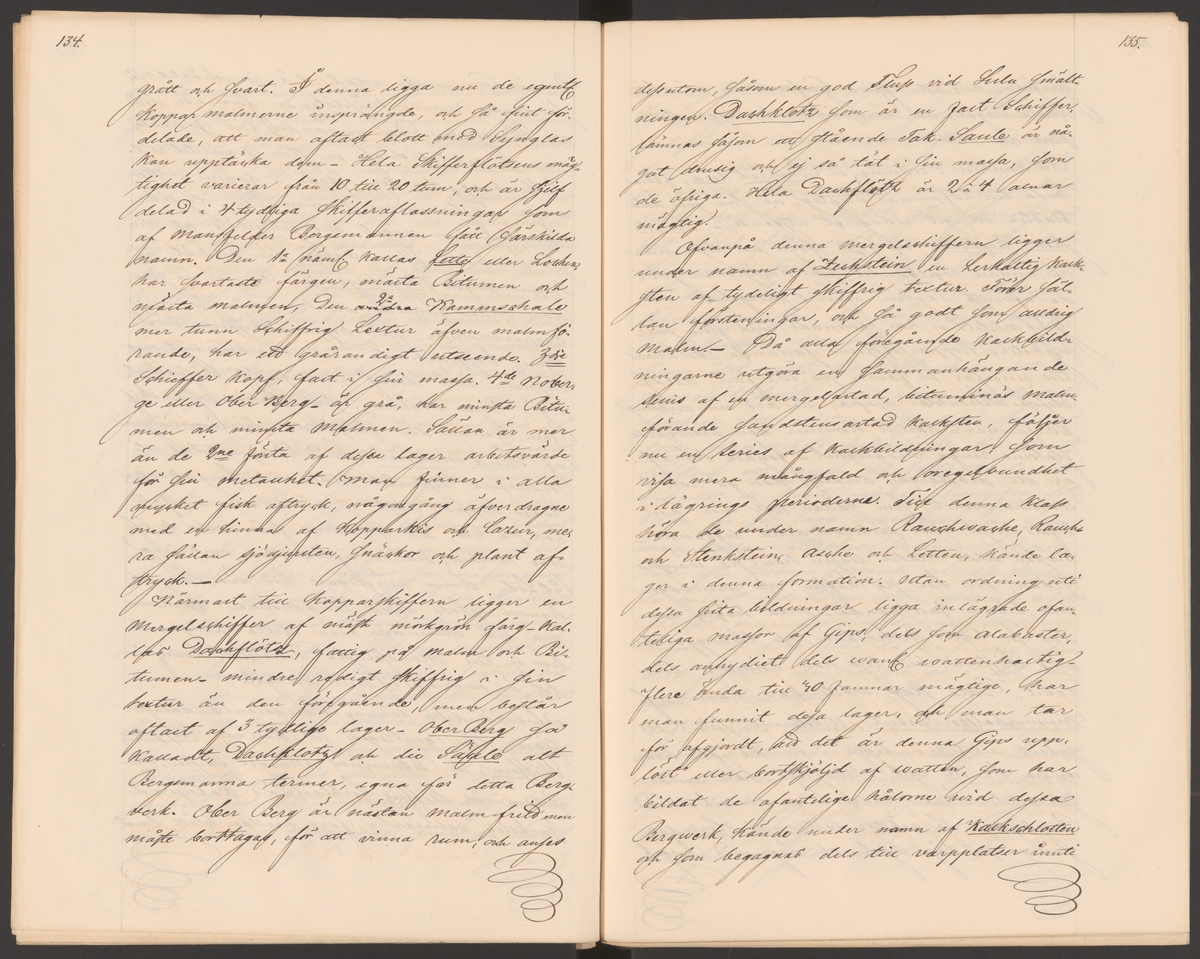 134.
grått och svart. I denna ligga nu de egentl
Kopparmalmerne insprängde, och så fint för-
delade, att man oftast blott med Synglas
kan upptäcka dem – Hela Skifferflötsens mäg-
tighet varierar från 10 till 20 tum, och är sjelf
delad i 4 tydliga Skifferaflossningar som
af Mansfelder Bergsmännen fått särskilda
namn. Den 1a näml kallas Lette eller Lochen,
har svartaste färgen, mästa Bitumen och
mästa malmen, Den andra 2a Kammschale
mer tunn Schiffrig Textur äfven malmfö-
rande, har ett grårandigt utseende. 3die
Schieffer Kopf, fast i sin massa. 4de Nober-
ge eller Ober Berg – är grå, har minsta Bitu-
men och minsta Malmen. Sällan är mer
än de 2ne första af dessa lager arbetsvärde
för sin metallhet. Man finner i alla
mycket fisk aftryck, någongång äfverdragne
med en hinna af Kopparkis och Lazur, me-
ra sällan sjödjurten, snäckor och plant af-
tryck. —
Närmast till Kopparskiffern ligger en
Mergelschiffer af mäst mörkgrön färg – Kal-
las Dachflötz, fattig på malm och Bi-
tumen – mindre redigt Skiffrig i sin
textur än den föregående, men består
oftast af 3 tydlige lager – Ober Berg så
kalladt, Dachklotz och die Säule alt
Bergsmanna termer, egna för detta Berg-
verk. Ober Berg är nästan malm fritd men
måste borttagas, för att vinna rum, och anses
135.
dessutom, såsom en god Fluss vid Sulu smält-
ningen. Dachklotz som är en fast Schiffer,
lämnas såsom ett stående Tak. Saule är nå-
got drusig och ej så tät i sin massa, som
de öfriga. Hela Dachflötz är 2 à 4 alnar
mägtig.
Ofvanpå denna mergelschiffern ligger
under namn af Zechstein en Lerhaltig Kalk-
sten af tydeligt skiffrig textur. Förer säl-
lan försteningar, och så godt som aldrig
Malm. — Då alla föregående Kalkbild-
ningarne utgöra en sammanhängande
suis af en mergelartad, bituminös malm
förande sandstensartad Kalksten, följer
nu en Series af Kalkbildningar, som
visa mera mångfald och oregelbundhet
i lägrings perioderne. Till denna Klass
höra de under namn Rauchwacke, Rauch-
och Stenkstein, Asche och Letten, kände la-
ger i denna formation. Utan ordning uti
dessa sista bildningar ligga inlägrade ofan-
teliga massor af Gips, dels som alabaster,
dels anhydriet dels wanl wattenhaltig.
Flere ända till 40 famnar mägtige, har
man funnit desa lager, och man tar
för afgjordt, att det är denna Gips upp-
löst eller bortskjöljd af watten, som har
bildat de ofantelige hålorne vid dessa
Bergwerk, kände under namn af Kalkschlotten
och som begagnas dels till varpplatser inuti